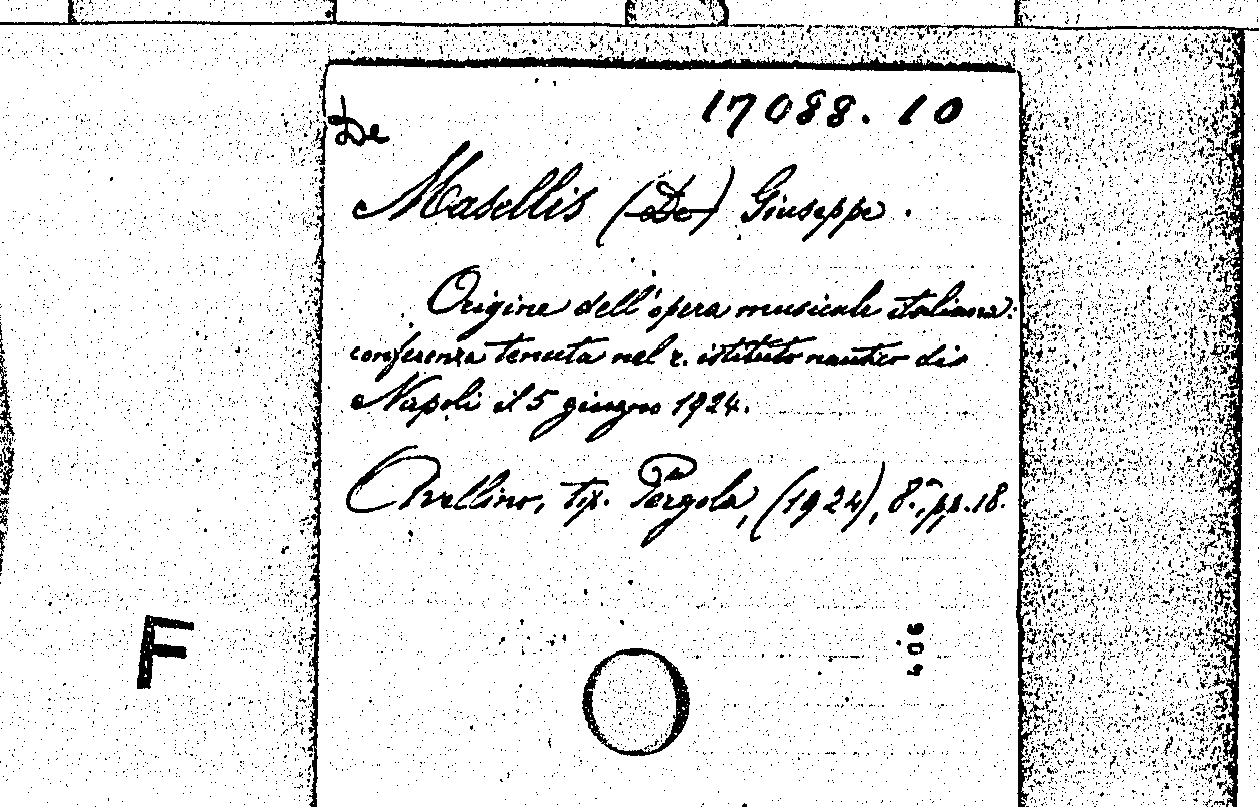 17088. 10
De
Masellis (De) Giuseppe.
Origine dell'opera musicale italiana:
conferenza tenuta nel r. istituto nautico di
Napoli il 5 giugno 1924.
Avellino, tip. Pergola, (1924), 8.°, pp. 18.
F
406